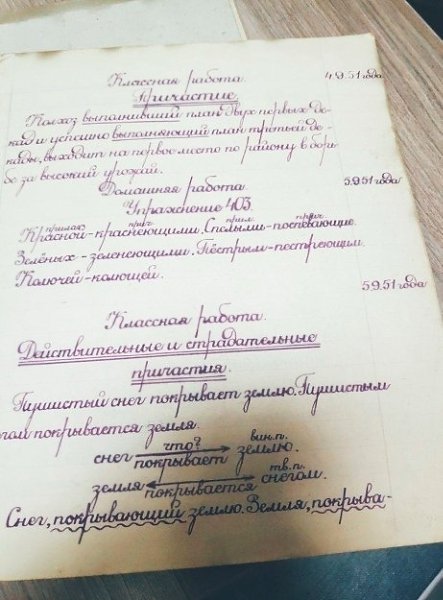 Классная работа. 4.9.51 года
Причастие.
Колхоз, выполнивший план двух первых де-
кад и успешно выполняющий план третьей де-
кады, выходит на первое место по району в борь-
бе за высокий урожай.
Домашняя работа 5.9.51 года
Упражнение 403.
прилаг. прич. прил. прич.
Красной-краснеющими. Спелыми-поспевающие.
Зелёных-зеленеющими. Пёстрым-пестреющим.
Колючей-колющей.
5.9.51 года
Классная работа.
Действительные и страдательные
причастия.
Пушистый снег покрывает землю. Пушистым
гом покрывается земля.
что? вин.п.
снег покрывает землю.
тв.п.
земля покрывается снегом.
Снег, покрывающий землю. Земля, покрыва-